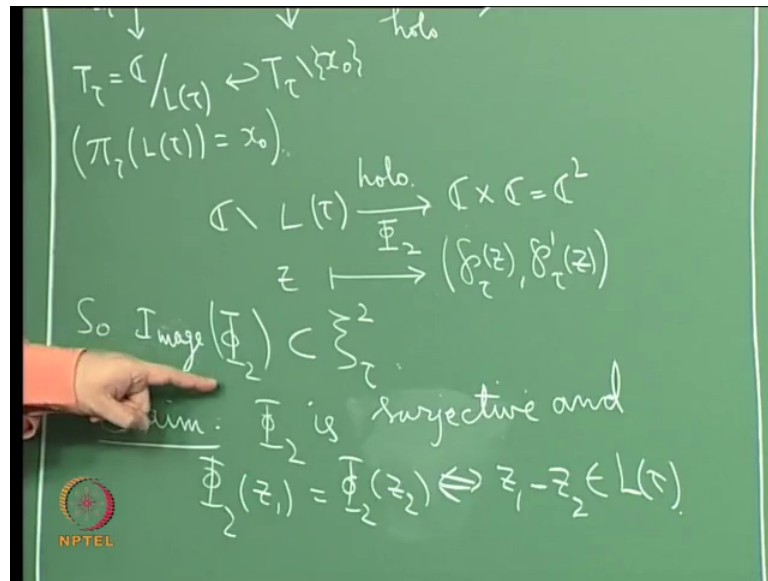 holo
T_τ = ℂ/L(τ) ↩ T_τ \ {x₀}
(π_τ(L(τ)) = x₀).
holo.
ℂ \ L(τ) ⟶ ℂ × ℂ = ℂ²
Φ₂
z ⟼ (℘_τ(z), ℘'_τ(z))
So Image(Φ₂) ⊂ ξ²_τ.
Claim: Φ₂ is surjective and
Φ₂(z₁) = Φ₂(z₂) ⇔ z₁ - z₂ ∈ L(τ).
NPTEL